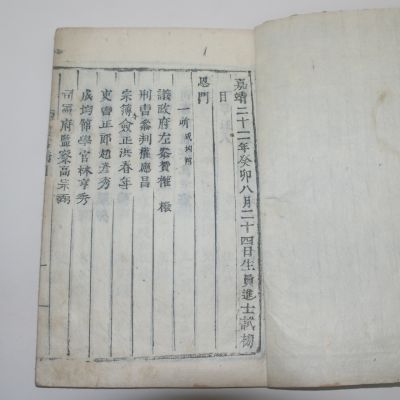 嘉靖二十二年癸卯八月二十四日生員進士試榜
目
恩門
一所成均館
議政府左參贊權橃
刑曹參判權應昌
宗簿僉正洪春年
吏曹正郎趙彥秀
成均館學官林亨秀
司憲府監察高宗